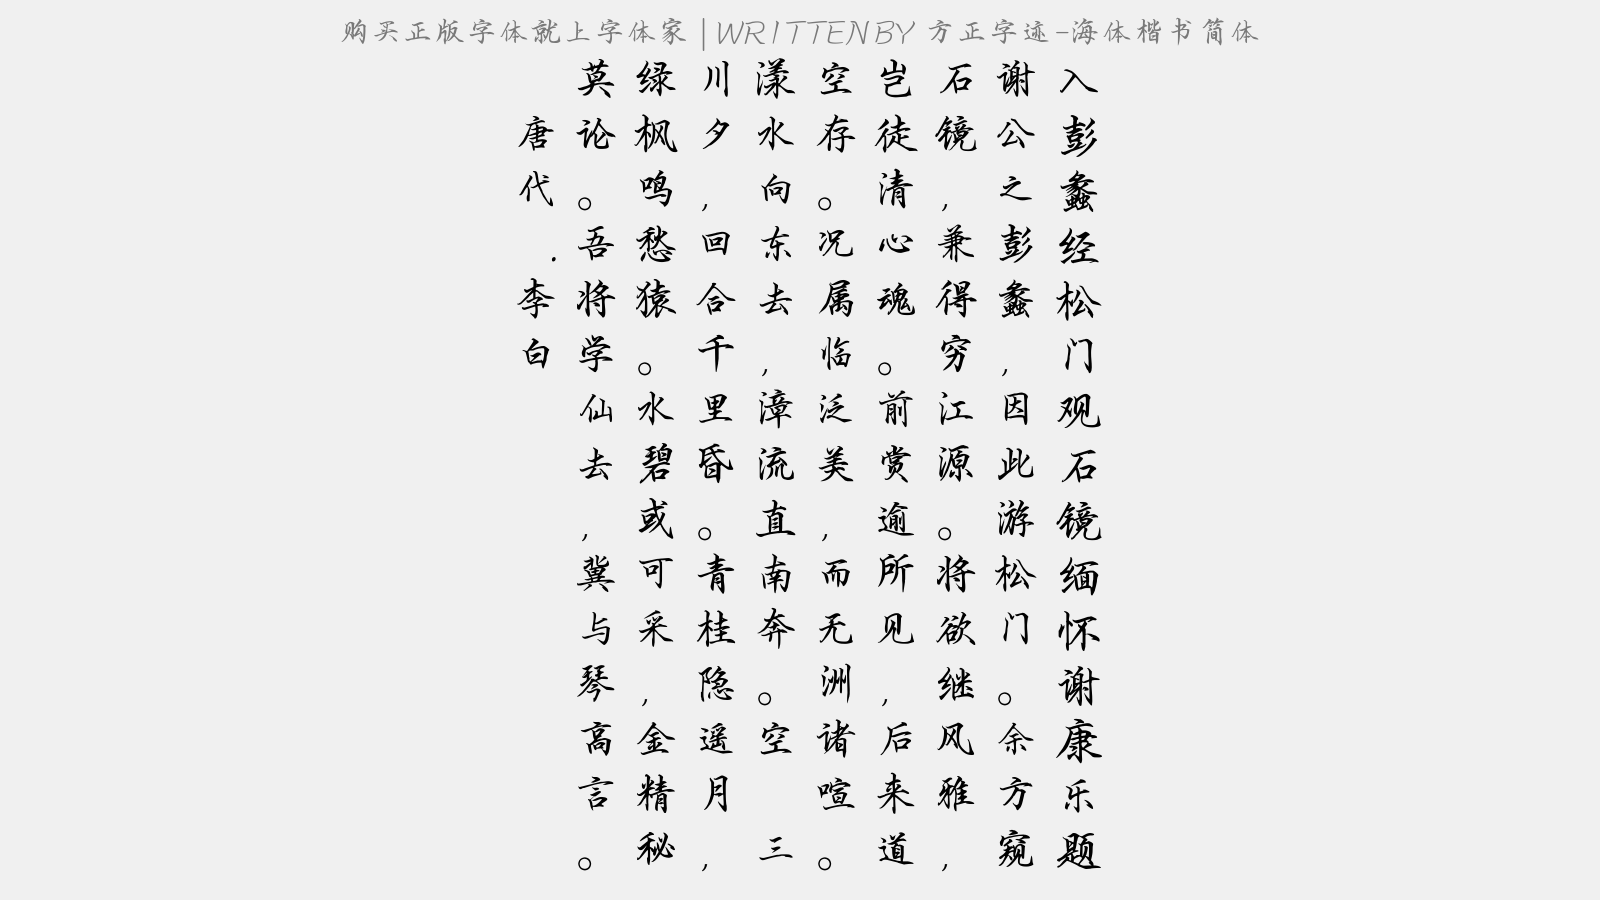 购买正版字体就上字体家 | WRITTEN BY 方正字迹-海体楷书简体
入彭蠡经松门观石镜缅怀谢康乐题
谢公之彭蠡,因此游松门。余方窥
石镜,兼得穷江源。将欲继风雅,
岂徒清心魂。前赏逾所见,后来道
空存。况属临泛美,而无洲诸喧。
漾水向东去,漳流直南奔。空 三
川夕,回合千里昏。青桂隐遥月,
绿枫鸣愁猿。水碧或可采,金精秘
莫论。吾将学仙去,冀与琴高言。
唐代.李白